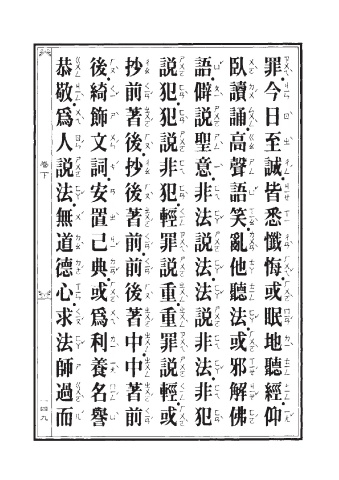 罪今日至誠皆悉懺悔或眠地聽經仰
臥讀誦高聲語笑亂他聽法或邪解佛
語僻說聖意非法說法法說非法非犯
說犯犯說非犯輕罪說重重罪說輕或
抄前著後抄後著前前後著中中著前
後綺飾文詞安置己典或爲利養名譽
恭敬爲人說法無道德心求法師過而
卷下
一四九